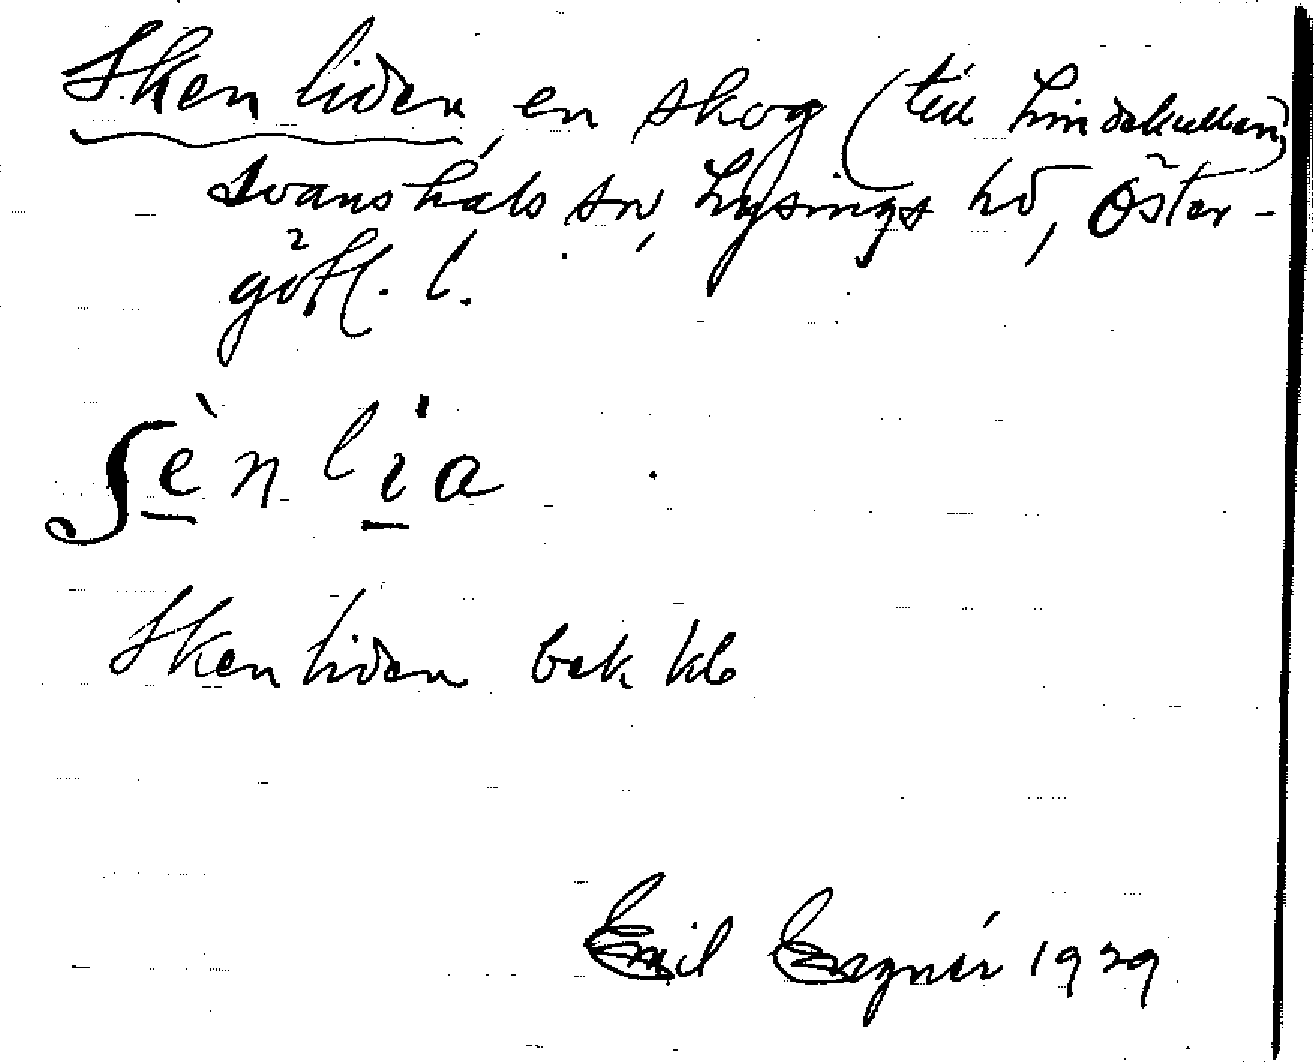 Skenliden, en skog (till Lindekullen)
Svanshals sn, Lysings hd, Öster-
götl. l.
ʃènlia
Skenliden bek kb
Emil 1929